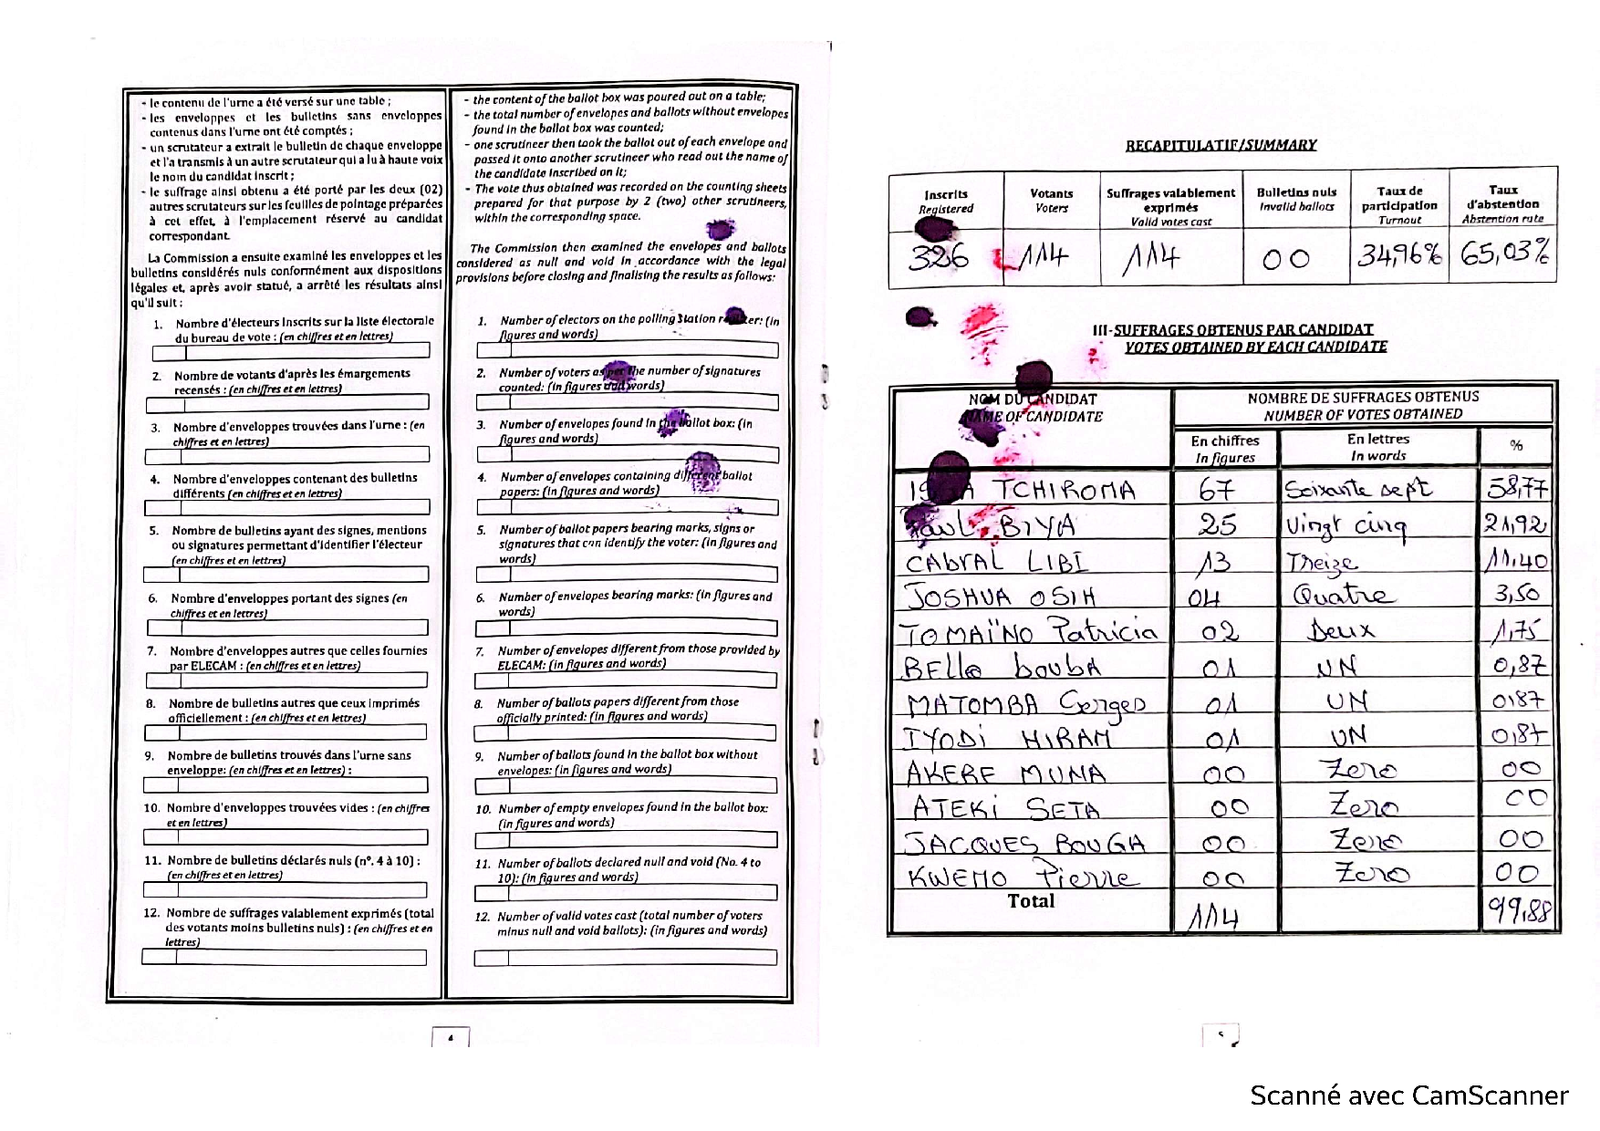 - le contenu de l'urne a été versé sur une table ;
- les enveloppes et les bulletins sans enveloppes
contenus dans l'urne ont été comptés ;
- un scrutateur a extrait le bulletin de chaque enveloppe
et l'a transmis à un autre scrutateur qui a lu à haute voix
le nom du candidat inscrit ;
- le suffrage ainsi obtenu a été porté par les deux (02)
autres scrutateurs sur les feuilles de pointage préparées
à cet effet, à l'emplacement réservé au candidat
correspondant.
La Commission a ensuite examiné les enveloppes et les
bulletins considérés nuls conformément aux dispositions
légales et, après avoir statué, a arrêté les résultats ainsi
qu'il suit :
1. Nombre d'électeurs inscrits sur la liste électorale
du bureau de vote : (en chiffres et en lettres)
2. Nombre de votants d'après les émargements
recensés : (en chiffres et en lettres)
3. Nombre d'enveloppes trouvées dans l'urne : (en
chiffres et en lettres)
4. Nombre d'enveloppes contenant des bulletins
différents (en chiffres et en lettres)
5. Nombre de bulletins ayant des signes, mentions
ou signatures permettant d'identifier l'électeur
(en chiffres et en lettres)
6. Nombre d'enveloppes portant des signes (en
chiffres et en lettres)
7. Nombre d'enveloppes autres que celles fournies
par ELECAM : (en chiffres et en lettres)
8. Nombre de bulletins autres que ceux imprimés
officiellement : (en chiffres et en lettres)
9. Nombre de bulletins trouvés dans l'urne sans
enveloppe: (en chiffres et en lettres) :
10. Nombre d'enveloppes trouvées vides : (en chiffres
et en lettres)
11. Nombre de bulletins déclarés nuls (n°. 4 à 10) :
(en chiffres et en lettres)
12. Nombre de suffrages valablement exprimés (total
des votants moins bulletins nuls) : (en chiffres et en
lettres)
- the content of the ballot box was poured out on a table;
- the total number of envelopes and ballots without envelopes
found in the ballot box was counted;
- one scrutineer then took the ballot out of each envelope and
passed it onto another scrutineer who read out the name of
the candidate inscribed on it;
- The vote thus obtained was recorded on the counting sheets
prepared for that purpose by 2 (two) other scrutineers,
within the corresponding space.
The Commission then examined the envelopes and ballots
considered as null and void in accordance with the legal
provisions before closing and finalising the results as follows:
1. Number of electors on the polling station register: (in
figures and words)
2. Number of voters as per the number of signatures
counted: (in figures and words)
3. Number of envelopes found in the ballot box: (in
figures and words)
4. Number of envelopes containing different ballot
papers: (in figures and words)
5. Number of ballot papers bearing marks, signs or
signatures that can identify the voter: (in figures and
words)
6. Number of envelopes bearing marks: (in figures and
words)
7. Number of envelopes different from those provided by
ELECAM: (in figures and words)
8. Number of ballots papers different from those
officially printed: (in figures and words)
9. Number of ballots found in the ballot box without
envelopes: (in figures and words)
10. Number of empty envelopes found in the ballot box:
(in figures and words)
11. Number of ballots declared null and void (No. 4 to
10): (in figures and words)
12. Number of valid votes cast (total number of voters
minus null and void ballots): (in figures and words)
4
RECAPITULATIF/SUMMARY
Inscrits Votants Suffrages valablement exprimés Bulletins nuls Taux de participation Taux d'abstention
Registered Voters Valid votes cast Invalid ballots Turnout Abstention rate
326 114 114 00 34,96% 65,03%
III-SUFFRAGES OBTENUS PAR CANDIDAT
VOTES OBTAINED BY EACH CANDIDATE
NOM DU CANDIDAT NOMBRE DE SUFFRAGES OBTENUS
NAME OF CANDIDATE NUMBER OF VOTES OBTAINED
En chiffres En lettres %
In figures In words
TCHIROMA 67 Soixante sept 58,77
Paul BIYA 25 Vingt cinq 21,92
CAbrAL LIBI 13 Treize 11,40
JOSHUA OSIH 04 Quatre 3,50
TOMAÏNO Patricia 02 Deux 1,75
BELLO bouBA 01 UN 0,87
MATOMBA Serges 01 UN 0,87
IYODi HIRAM 01 UN 0,87
AKERE MUNA 00 Zero 00
ATEKi SETA 00 Zero 00
JACQUES BOUGA 00 Zero 00
KWEMO Pierre 00 Zero 00
Total 114 99,88
5
Scanné avec CamScanner